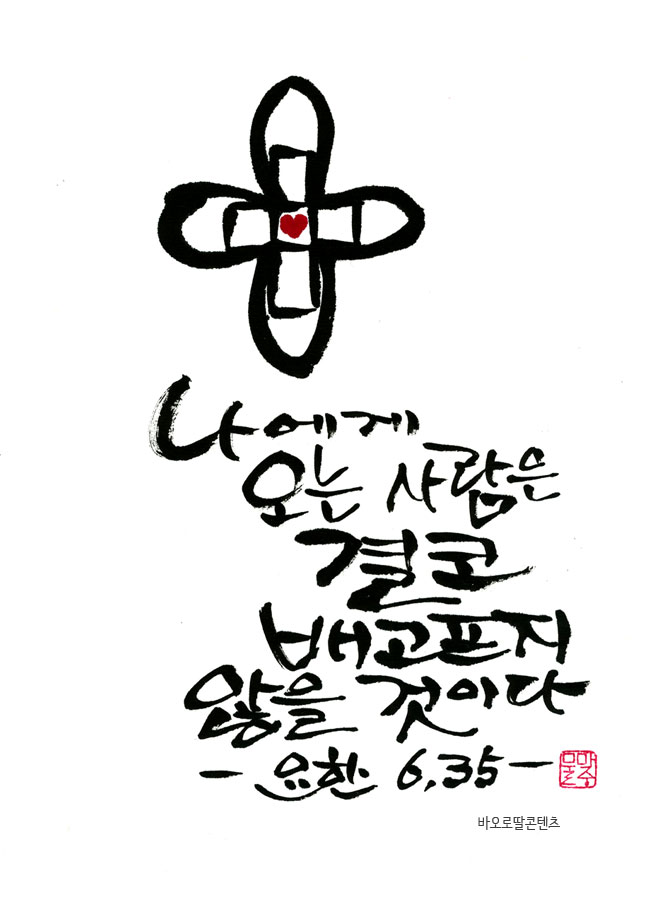 나에게
오는 사람은
결코
배고프지
않을 것이다
- 요한 6,35 -
바오로딸콘텐츠